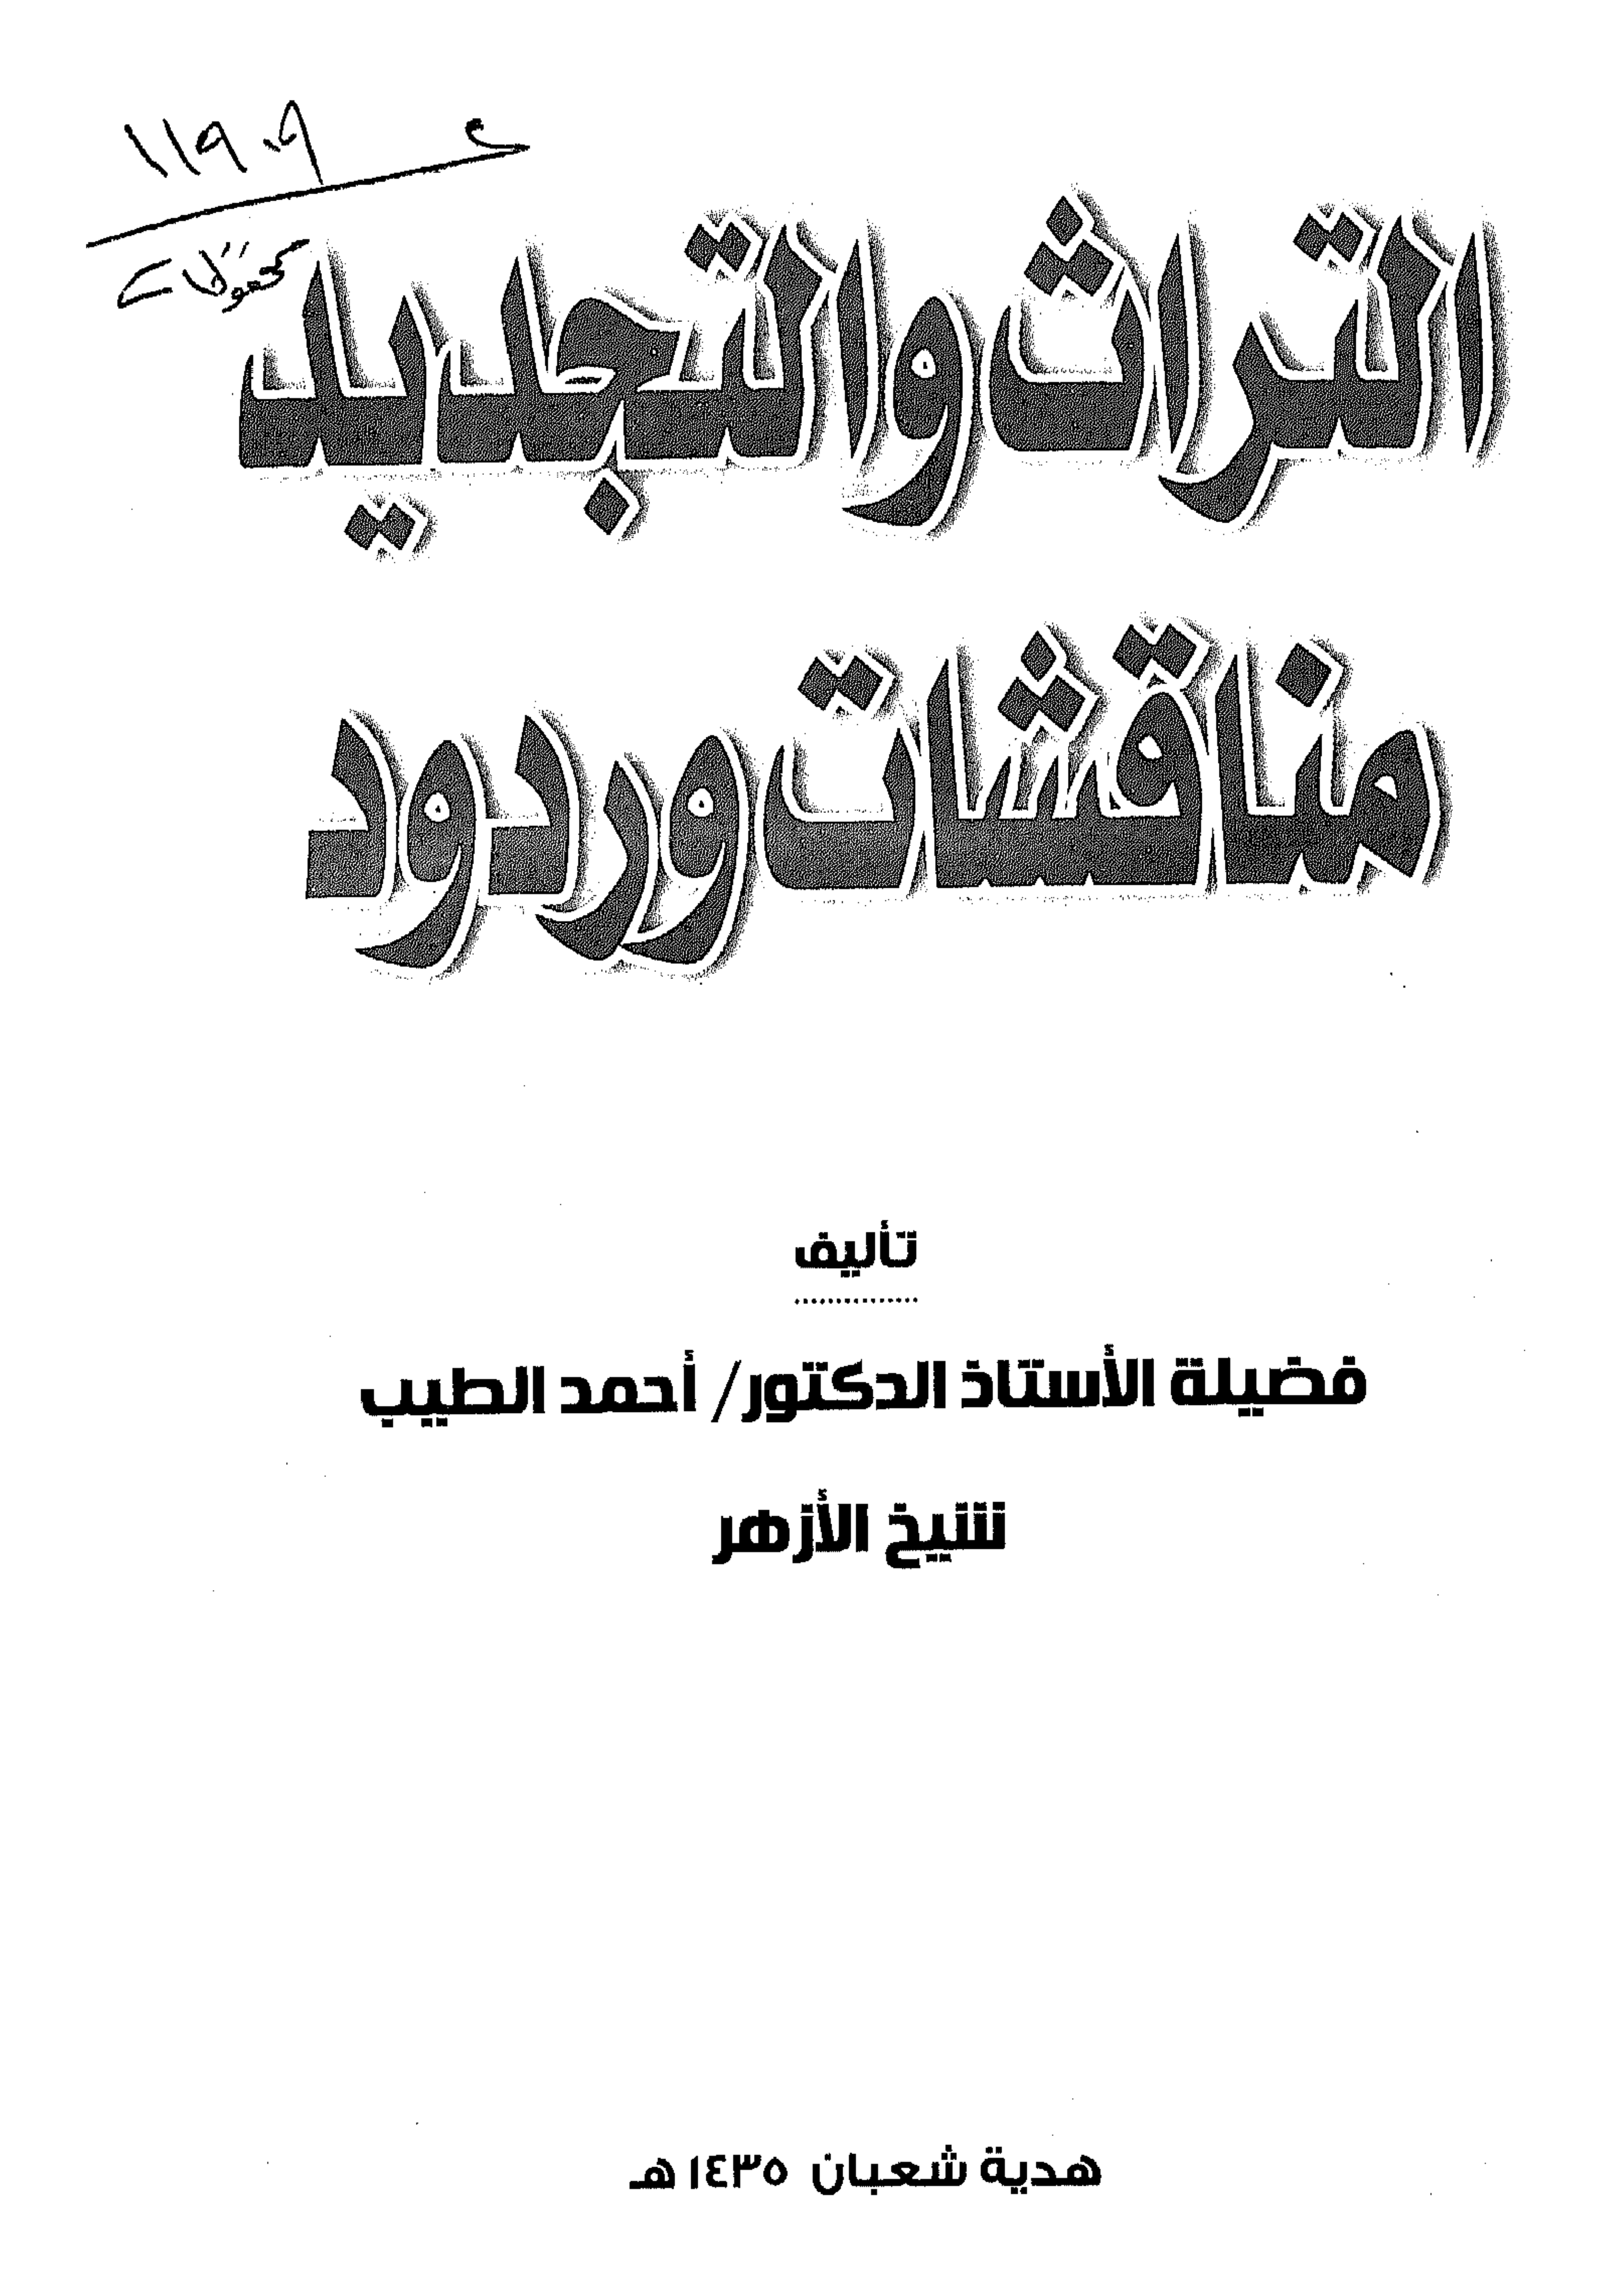 التراث والتجديد
مناقشات وردود
تأليف
فضيلة الأستاذ الدكتور/ أحمد الطيب
شيخ الأزهر
هدية شعبان ١٤٣٥هـ